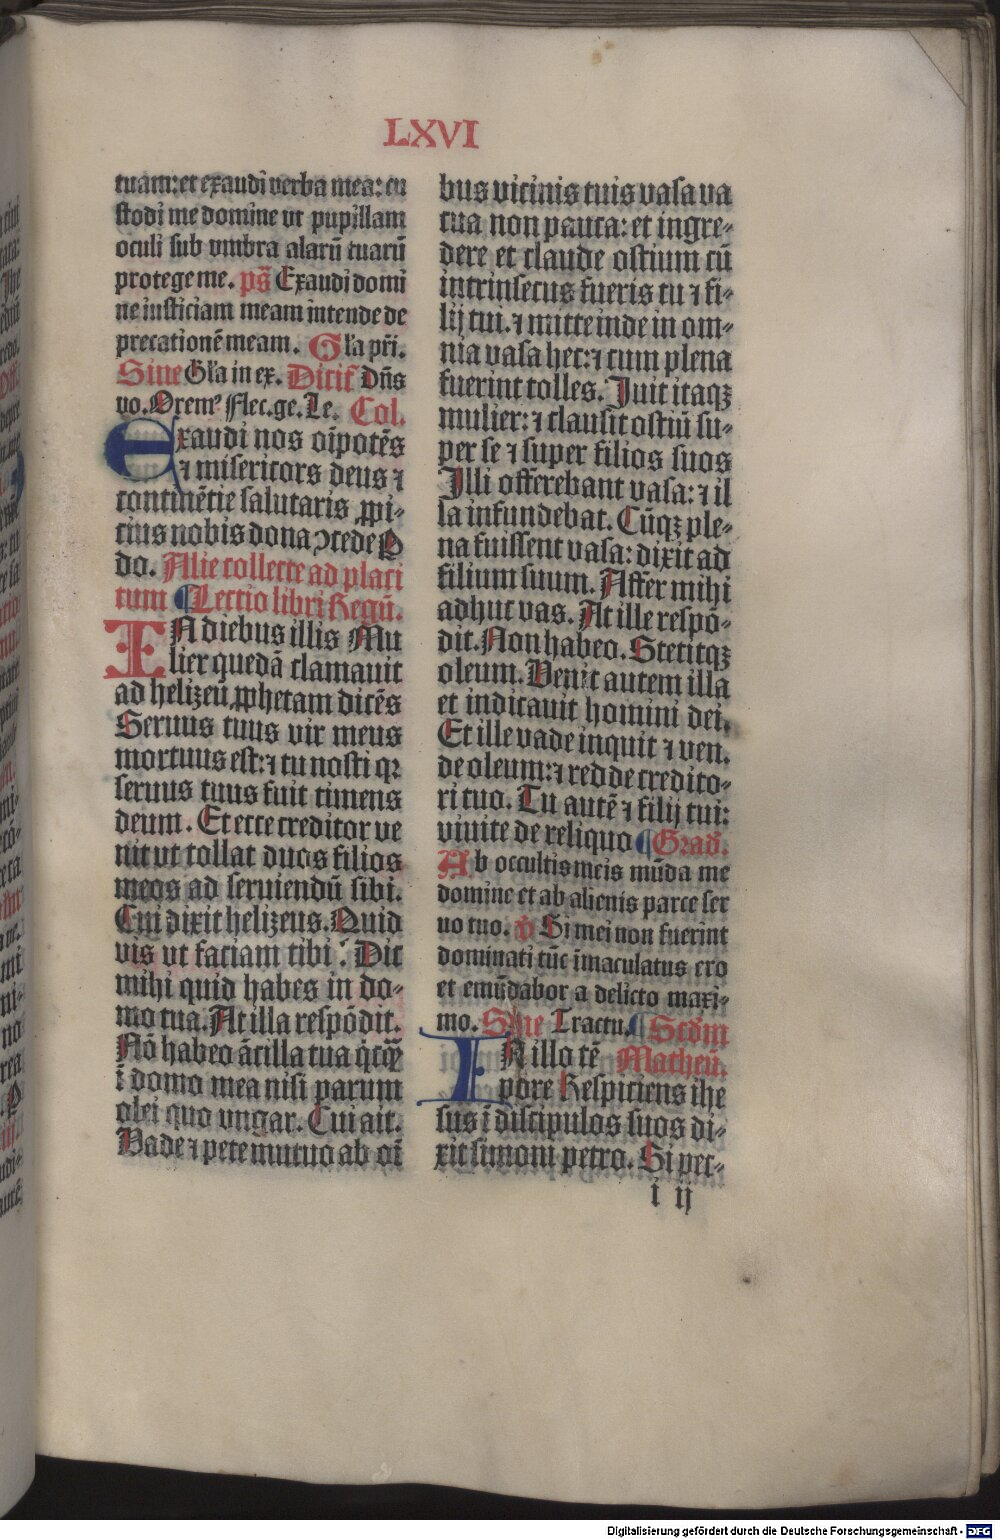 LXVI
tuam: et exaudi verba mea: cu
stodi me domine vt pupillam
oculi sub vmbra alarū tuarū
protege me. ps̄ Exaudi domi
ne iusticiam meam intende de
precationē meam. Gl'a pr̄i.
Sine Gl'a in ex. Dicit' Dn̄s
vo. Orem⁹ Flec. ge. Le. Col.
Exaudi nos oīpotēs
⁊ misericors deus ⁊
continētie salutaris ꝓpi-
cius nobis dona ↄcede P
do. Alie collecte ad placi
tum Lectio libri Regū.
IN diebus illis Mu
lier quedā clamauit
ad helizeū ꝓphetam dicēs
Seruus tuus vir meus
mortuus est: ⁊ tu nosti qꝛ
seruus tuus fuit timens
deum. Et ecce creditor ve
nit vt tollat duos filios
meos ad seruiendū sibi.
Cui dixit helizeus. Quid
vis vt faciam tibi? Dic
mihi quid habes in do-
mo tua. At illa respōdit.
Nō habeo ācilla tua q̇cq̄
ī domo mea nisi parum
olei quo vngar. Cui ait.
Vade ⁊ pete mutuo ab oī
bus vicinis tuis vasa va
cua non pauca: et ingre-
dere et claude ostium cū
intrinsecus fueris tu ⁊ fi-
lij tui. ⁊ mitte inde in om-
nia vasa hec: ⁊ cum plena
fuerint tolles. Iuit itaqꝫ
mulier: ⁊ clausit ostiū su-
per se ⁊ super filios suos
Illi offerebant vasa: ⁊ il
la infundebat. Cūqꝫ ple-
na fuissent vasa: dixit ad
filium suum. Affer mihi
adhuc vas. At ille respō-
dit. Non habeo. Stetitqꝫ
oleum. Venit autem illa
et indicauit homini dei.
Et ille vade inquit ⁊ ven.
de oleum: ⁊ redde credito-
ri tuo. Tu autē ⁊ filij tui:
viuite de reliquo Grad̄.
Ab occultis meis mūda me
domine et ab alienis parce ser
uo tuo. v̄ Si mei non fuerint
dominati tūc īmaculatus ero
et emūdabor a delicto maxi-
mo. Sine Tractu. Scdm
IN illo tē Matheū.
pore Respiciens ihe
sus ī discipulos suos di-
xit simoni petro. Si pec-
i ij
Digitalisierung gefördert durch die Deutsche Forschungsgemeinschaft - DFG